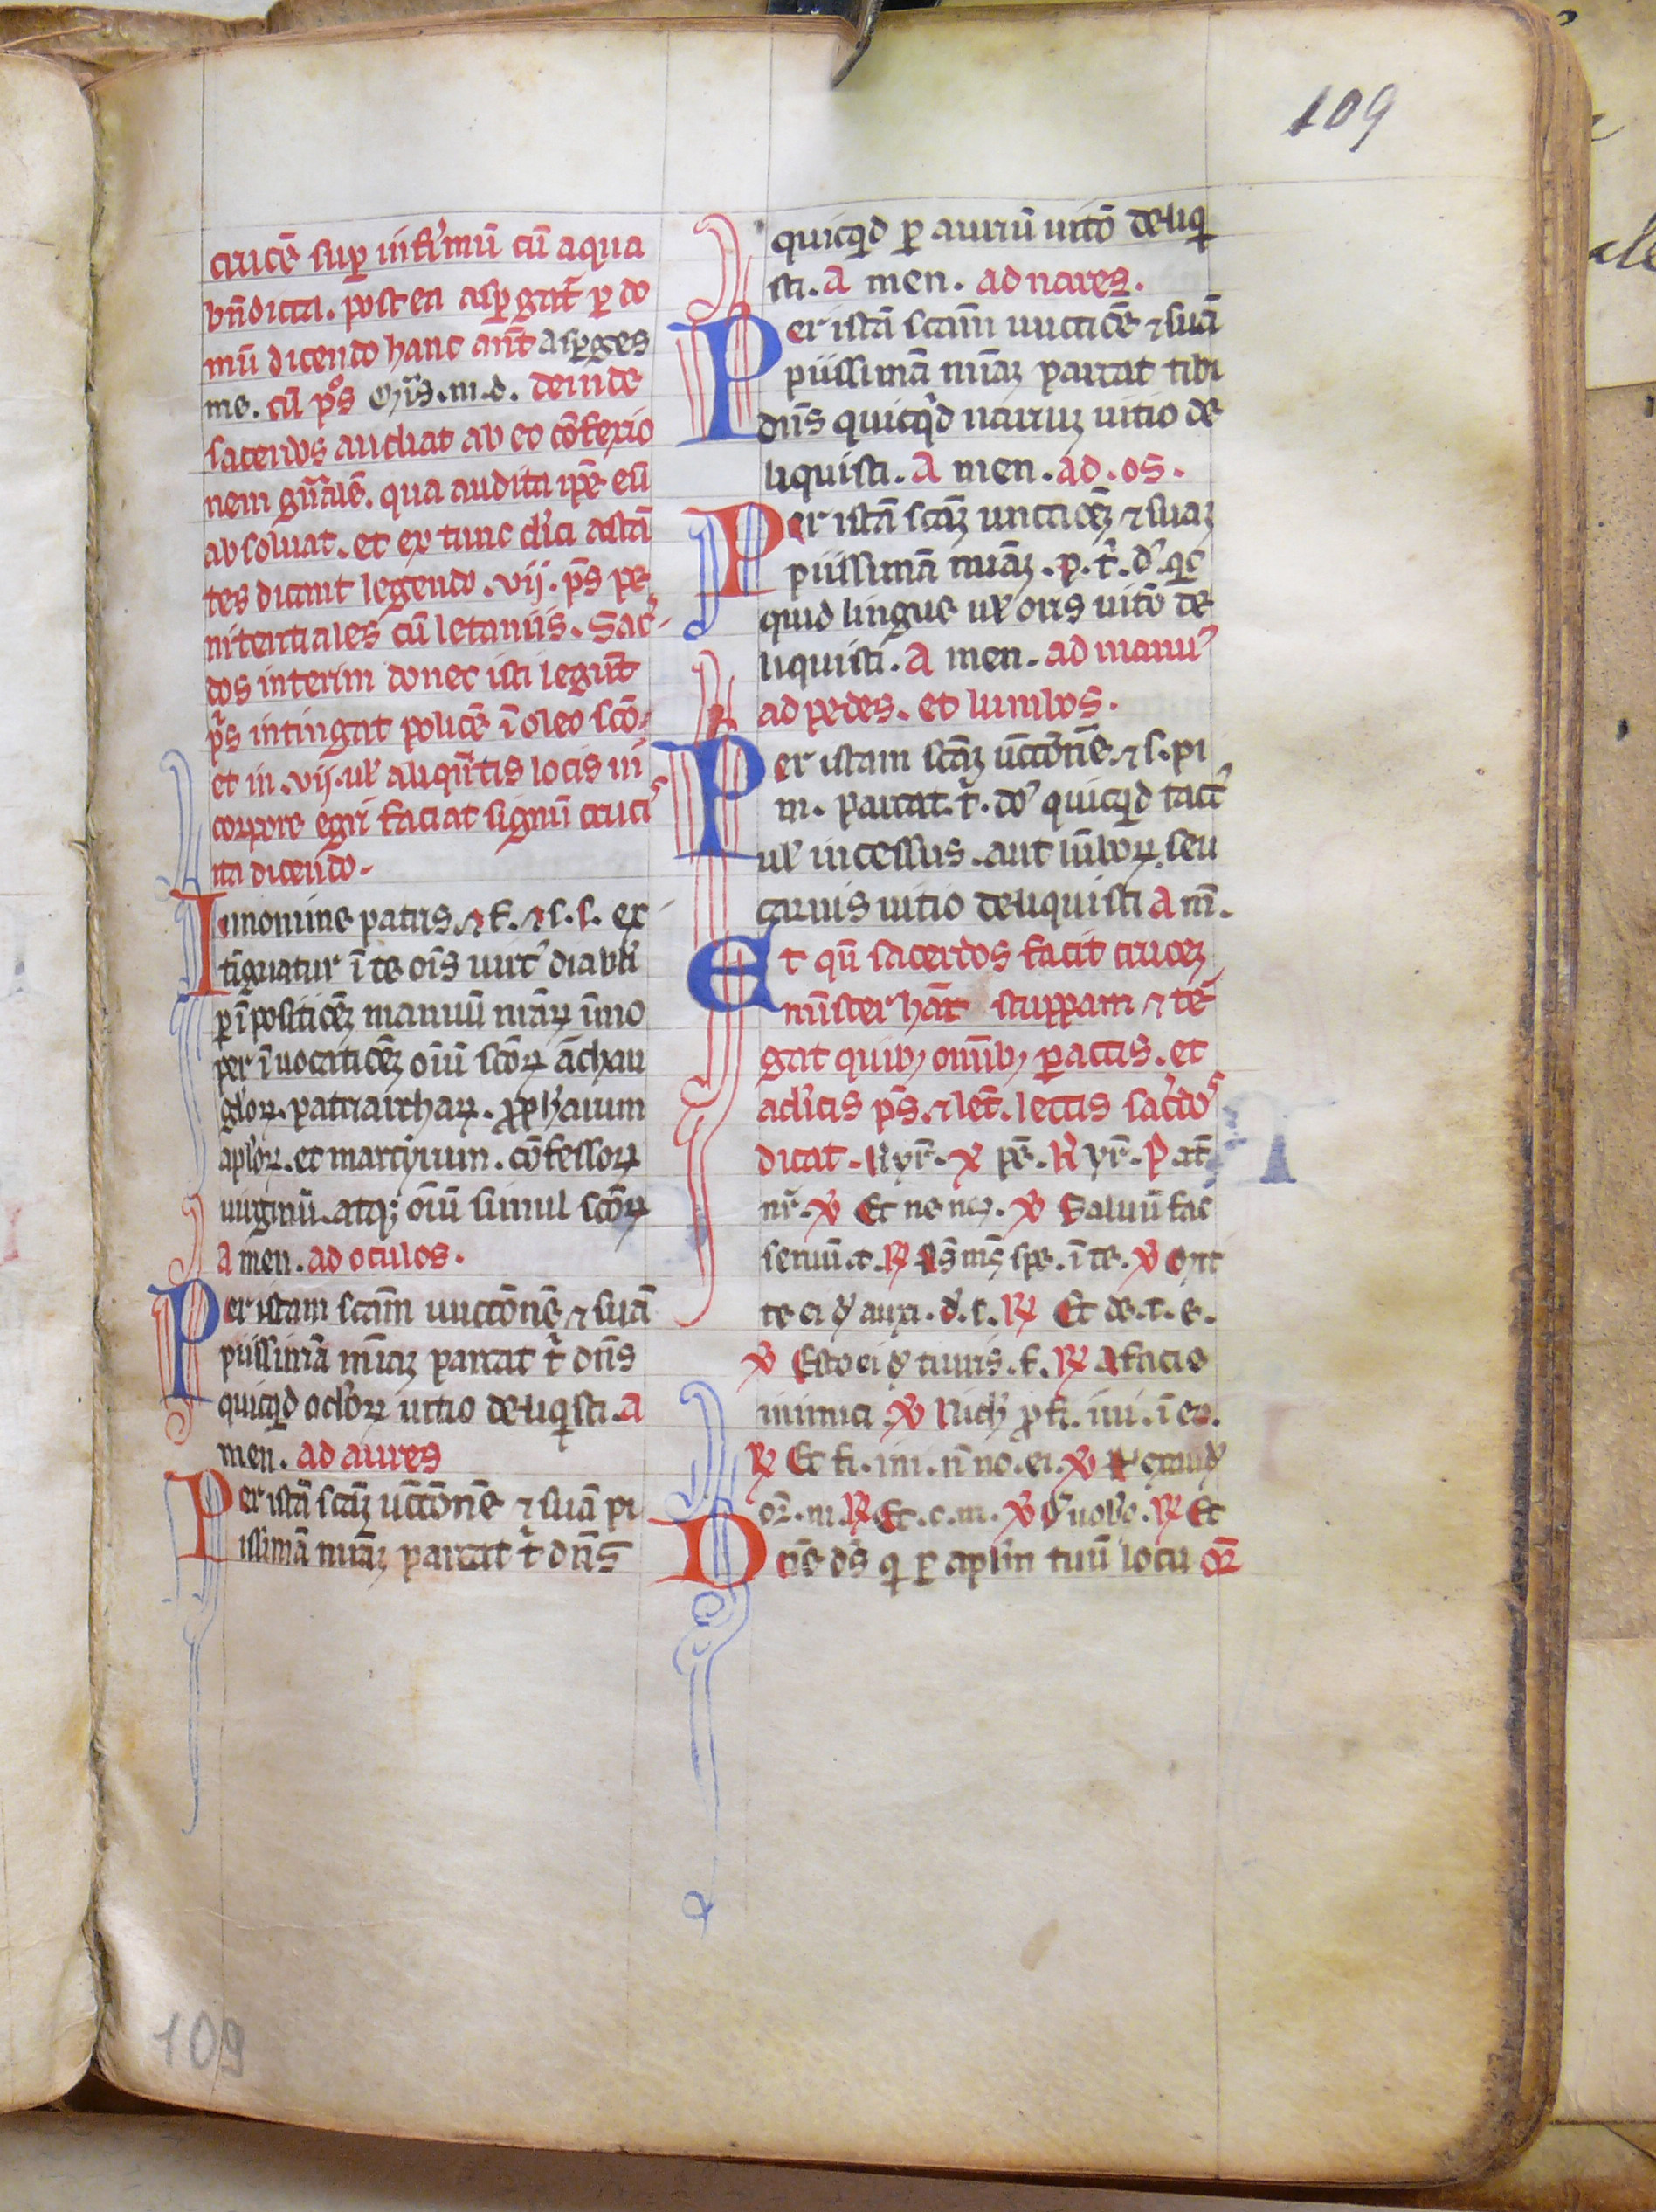 109
crucē suꝑ infirmū cū aqua
bn̄dicta. postea asꝑgat̄ ꝑ do
mū dicendo hanc ant̄ asꝑges
me. cū ps̄ Mis̄.m.d. deinde
sacerdos audiat ab eo cōfessio
nem gn̄alē. qua audita ip̄e eū
absoluat. et ex tunc cl̓ici astā
tes dicant legendo .vij. ps̄ pe
nitentiales cū letaniis. Sac̓
dos interim donec isti legūt
ps̄ intingat policē ī oleo scō
et in .vij. ul̓ aliqn̄tis locis in
corpore egri faciat signū cruci᷒
ita dicendo.
In nomine patris. ⁊ f. ⁊ s. s. ex
tīguatur ī te oīs uirt᷒ diaboli
ꝑ īpositiōeꝫ manuū nrāꝝ īmo
per īuocatiōeꝫ oīū scōꝝ āchan
gl̓oꝝ. patriarchaꝝ. ꝓph̓arum
apl̓oꝝ. et martyrum. cōfessoꝝ
uirginū. atqꝫ oīū simul scōꝝ
Amen. ad oculos.
Per istam scām unctōnē ⁊ suā
piissimā mīaꝫ parcat t̓ dn̄s
quicq̓d ocl̓oꝝ uitio deliq̓sti. A
men. ad aures
Per istā scāꝫ ūctōnē ⁊ suā pi
issimā mīaꝫ parcat t̓ dn̄s
quicq̓d ꝑ auriū uitō deliq̓
sti. A men. ad nares.
Per istā scām unctiōē ⁊ suā
piissimā mīaꝫ parcat tibi
dn̄s quicq̓d nariuꝫ uitio de
liquisti. A men. ad. os.
Per istā scāꝫ unctiōeꝫ ⁊ suaꝫ
piissimā mīaꝫ. p. t̓. d̓. qc̓
quid lingue ul̓ oris uitō de
liquisti. A men. ad manu᷒
ad pedes. et lumbos.
Per istam scāꝫ ūctōnē. ⁊ s. pi
m. parcat. t̓. do᷒ quicq̓d tact᷒
ul̓ incessus. aut lūboꝝ. seu
carnis uitio deliquisti A m̄.
Et qn̄ sacerdos facit cruceꝫ
mīster hāt stuppam ⁊ tē
gat quibꝫ omībꝫ ꝑactis. et
adictis ps̄. ⁊ let̄. lectis sac̓do᷒
dicat. Kyr̄. X pē. Kyr̄. Pat̄
nr̄. ℣ Et ne nos. ℣ Saluū fac
seruū. t. ℟ ds̄ ms̄ spe. ī te. ℣ Mit
te ei dn̄ auxi. d̓. s. ℟ Et de. s. e.
℣ Esto ei dn̄ turris. f. ℟ A facie
inimici. ℣ Nich̓ ꝓfi. ini. ī eo.
℟ Et fi. ini. n̄ no. ei. ℣ exaudi
or̄. m. ℟ Et. c. m. ℣ Dn̄s uobc̄. ℟ Et
Dn̄e ds̄ q̓ ꝑ apl̓m tuū locu or̄
109